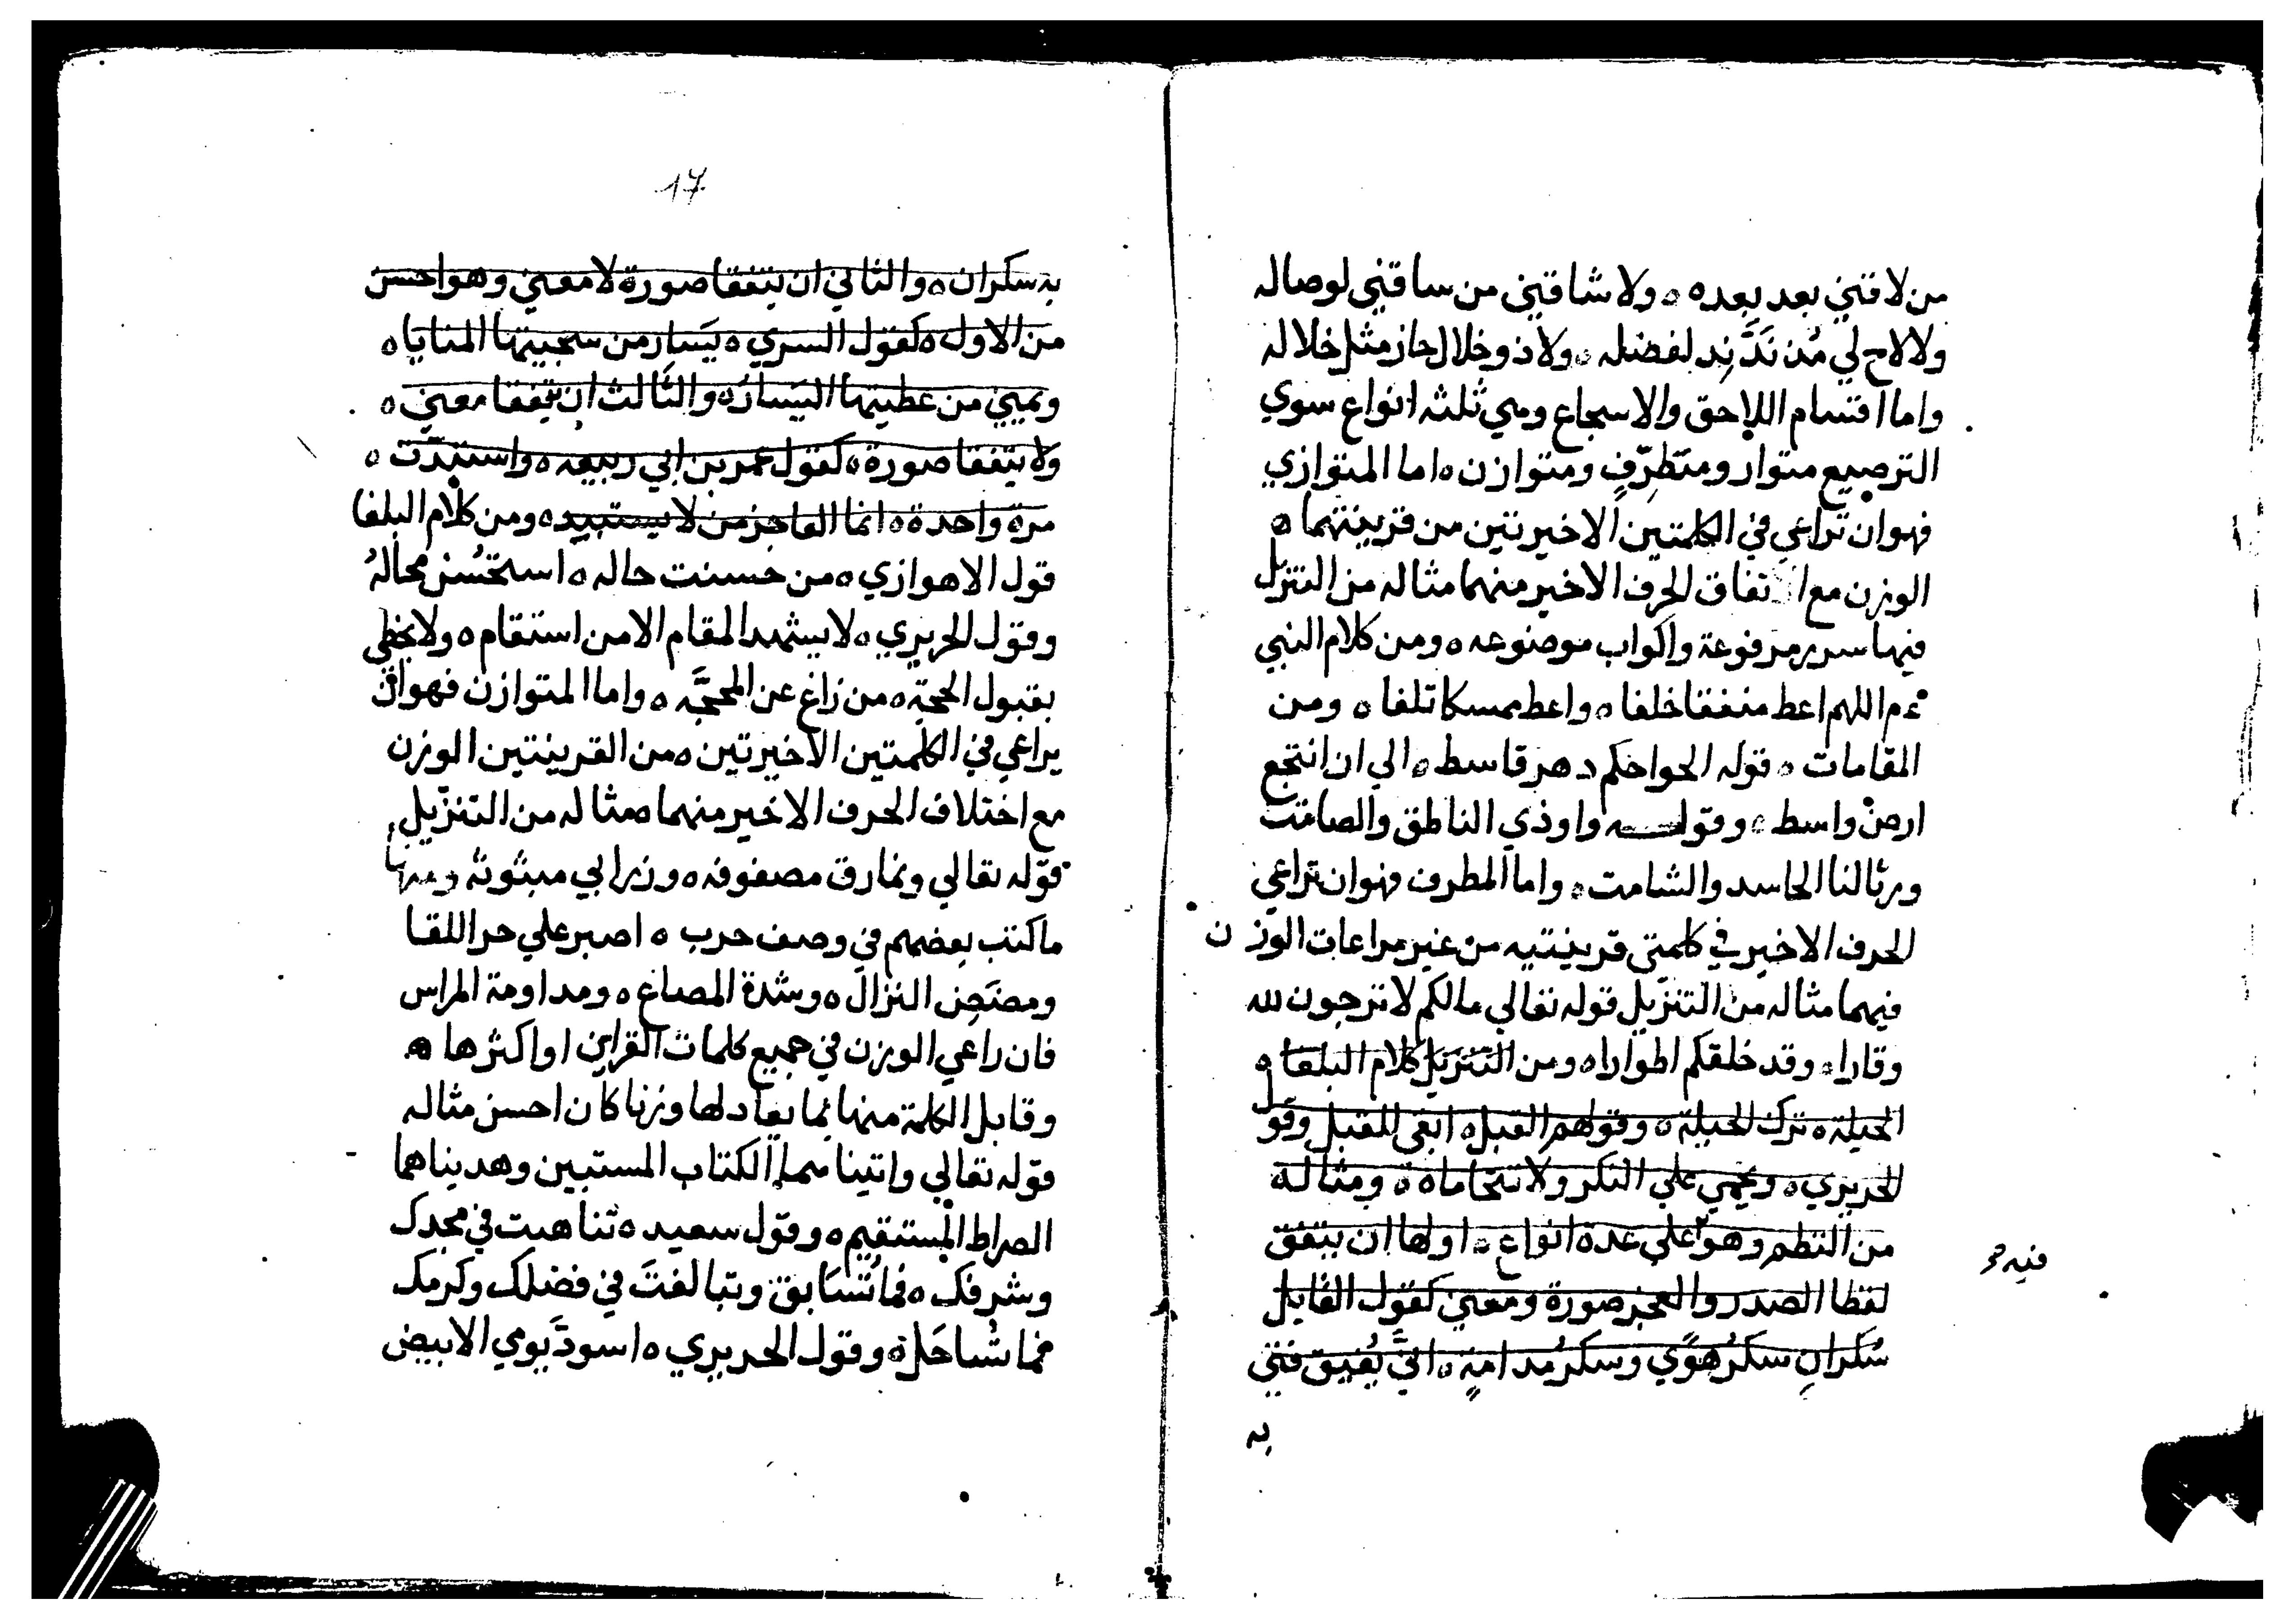 من لاقني بعد بعده ه ولا شاقني من ساقني لوصاله
ولا لاح لي مذ ند ند لفضله ه ولا ذو خلال حاز مثل خلاله
واما اقتسام اللاحق والاسجاع وهي ثلثه انواع سوي
الترصيع متواز ومتطرف ومتوازن ه اما المتوازي
فهوان تراعي في الكلمتين الاخيرتين من قرينتهما ه
الوزن مع اتفاق الحرف الاخير منهما مثاله من التنزيل
فيها سرر مرفوعة واكواب موضوعه ه ومن كلام النبي
ءم اللهم اعط منفقا خلفا ه واعط ممسكا تلفا ه ومن
المقامات ه قوله الجوا حكم دهر قاسط ه الي ان انتجع
ارض واسط ه وقوله واوذي الناطق والصامت
ورثا لنا الحاسد والشامت ه واما المطرف فهوان تراعي
الحرف الاخير في كلمتي قرينتيه من غير مراعات الوزن
فيهما مثاله من التنزيل قوله تعالي مالكم لا ترجون لله
وقارا ه وقد خلقكم اطوارا ه ومن التنزيل كلام البلغا ه
الحيلة ه ترك الحيلة ه وقولهم القبل ه ابقي للمقبل وقول
الحريري ه ويحمي علي النكر ولا تتحاماه ة ومثاله
من النظم وهو علي عدة انواع ه اولها ان يتفق
فيه
لفظا الصدر والعجز صورة ومعني كقول القايل
سكران سكر هوي وسكر مدامة ه اني يفيق فتي
به
17
به سكران ه والثاني ان يتفقا صورة لا معني وهو احسن
من الاول ه كقول السري ه يسار من سجيتها المنايا ه
ويمني من عطيتها اليسار ه والثالث ان يتفقا معني ه
ولا يتفقا صورة ه كقول عمر بن ابي ربيعه ه واستبدت ه
مرة واحدة ه انما العاجز من لا يستبيد ه ومن كلام البلغا
قول الاهوازي ه من حسنت حاله ه استحسن محاله
وقول الحريري ه لا يشهد المقام الا من استقام ه ولا يحظي
بقبول الحجة ه من زاغ عن المحجه ه واما المتوازن فهوان
يراعي في الكلمتين الاخيرتين ه من القرينتين الوزن
مع اختلاف الحرف الاخير منهما مثاله من التنزيل
قوله تعالي ونمارق مصفوفه ه وزرابي مبثوثه ومنها
ما كتب بعضهم في وصف حرب ه اصبر علي حر اللقا
ومضض النزال ه وشدة المصاع ه ومداومة المراس
فان راعي الوزن في جميع كلمات القراين او اكثرها ه
وقابل الكلمة منها بما يعادلها وزنا كان احسن مثاله
قوله تعالي واتيناهما الكتاب المستبين وهديناهما
الصراط المستقيم ه وقول سعيد ه تناهيت في مجدك
وشرفك ه فما تسابق وتبالغت في فضلك وكرمك
فما تساجل ه وقول الحريري ه اسود يومي الابيض